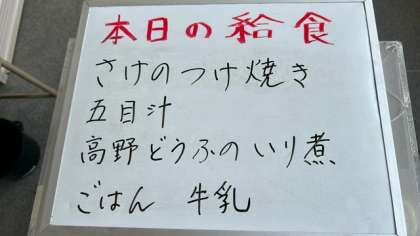 本日の給食
さけのつけ焼き
五目汁
高野どうふのいり煮
ごはん 牛乳